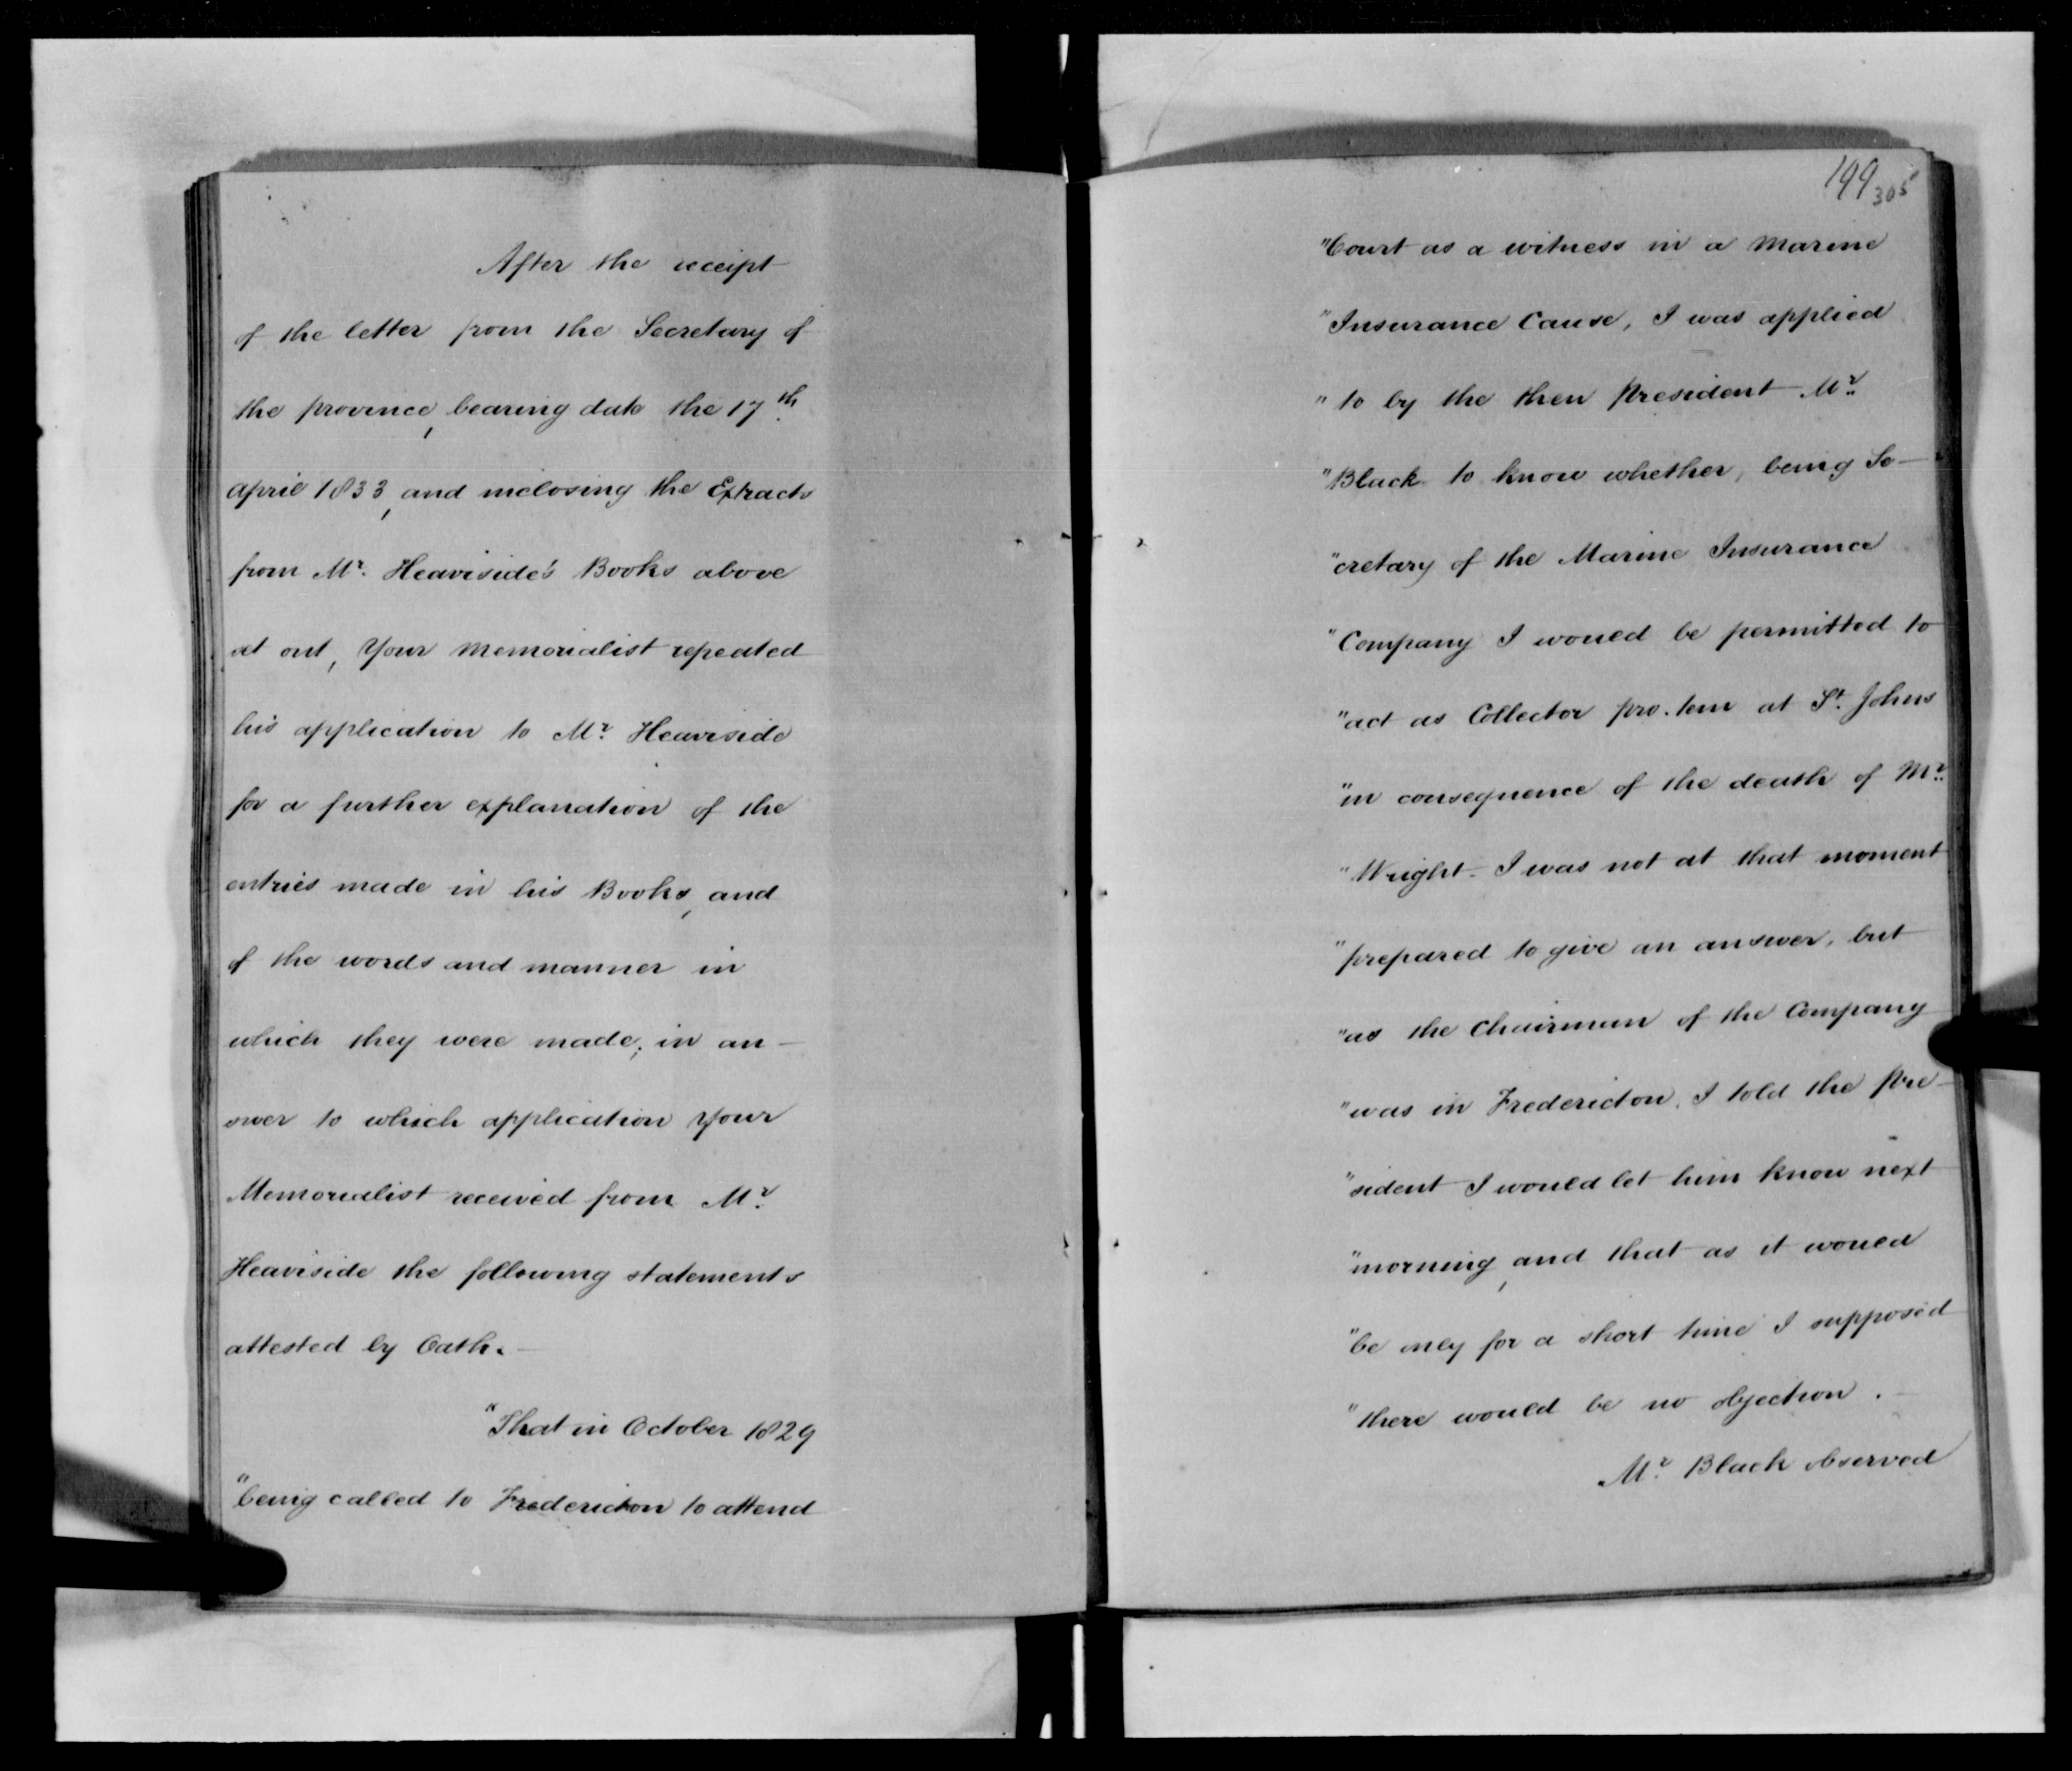 After the receipt
of the letter from the Secretary of
the province, bearing date the 17th
april 1833, and inclosing the Extracts
from Mr. Heaviside's Books above
set out, Your Memorialist repeated
his application to Mr. Heaviside
for a further explanation of the
entries made in his Books, and
of the words and manner in
which they were made; in an-
swer to which application Your
Memorialist received from Mr.
Heaviside the following statements
attested by Oath.—
"That in October 1829
"being called to Fredericton to attend
199 305
"Court as a witness in a Marine
"Insurance Cause, I was applied
"to by the then President Mr.
"Black to know whether, being Se-
"cretary of the Marine Insurance
"Company I would be permitted to
"act as Collector pro. tem at St. Johns
"in consequence of the death of Mr.
"Wright. I was not at that moment
"prepared to give an answer, but
"as the Chairman of the Company
"was in Fredericton, I told the Pre-
"sident I would let him know next
"morning, and that as it would
"be only for a short time I supposed
"there would be no objection.—
Mr. Black observed